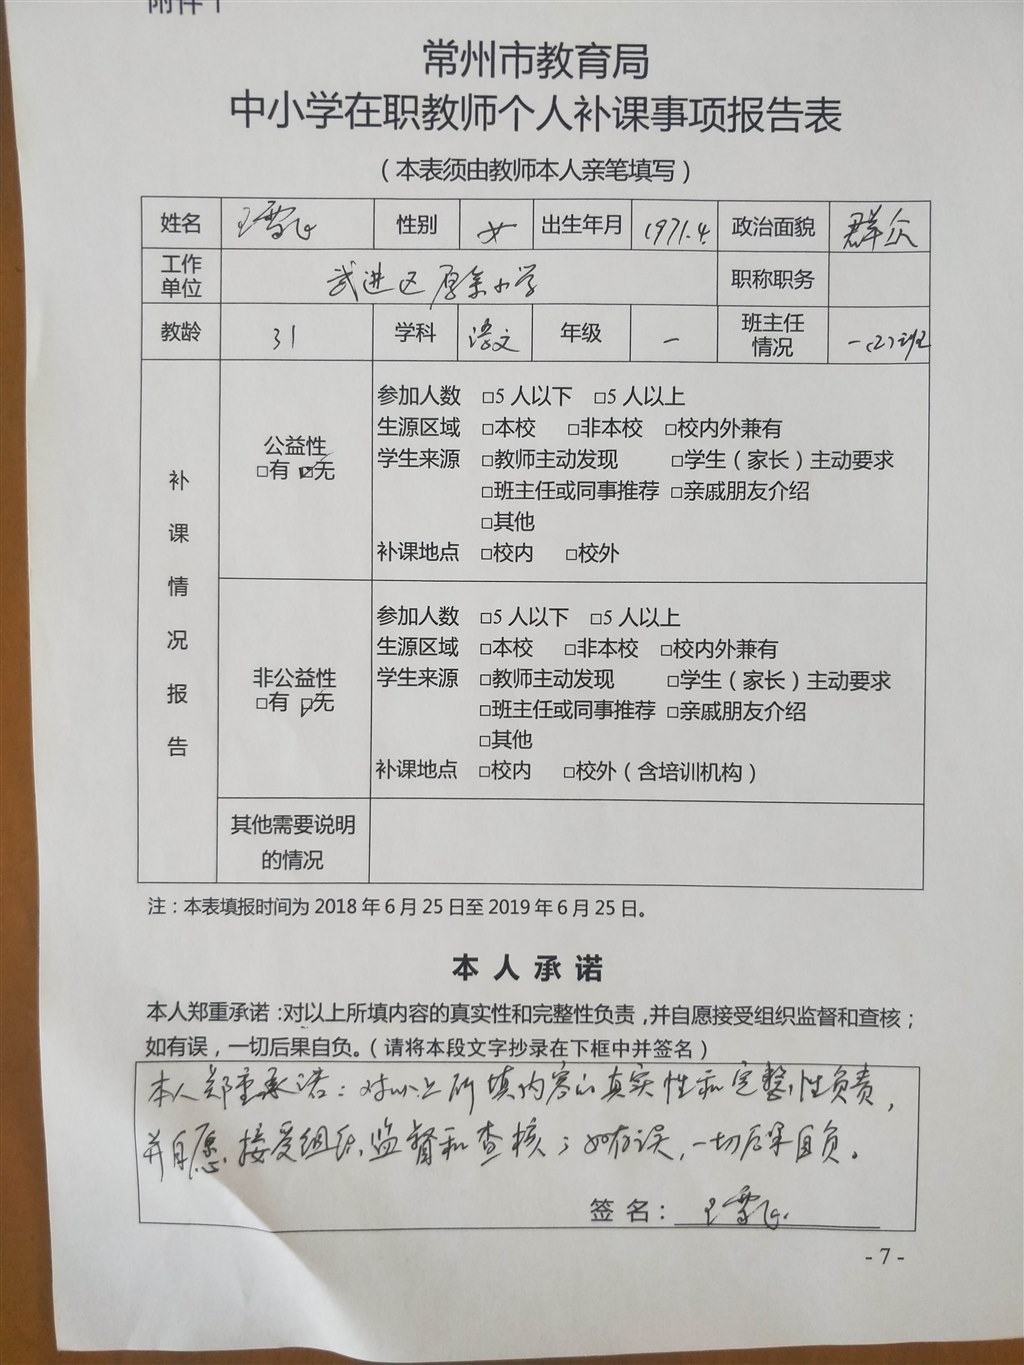 附件1
常州市教育局
中小学在职教师个人补课事项报告表
（本表须由教师本人亲笔填写）
姓名 王雪飞 性别 女 出生年月 1971.4. 政治面貌 群众
工作单位 武进区厚余小学 职称职务
教龄 31 学科 语文 年级 一 班主任情况 一(2)班
补课情况报告
公益性
□有 ☑无
参加人数 □5人以下 □5人以上
生源区域 □本校 □非本校 □校内外兼有
学生来源 □教师主动发现 □学生（家长）主动要求
□班主任或同事推荐 □亲戚朋友介绍
□其他
补课地点 □校内 □校外
非公益性
□有 ☑无
参加人数 □5人以下 □5人以上
生源区域 □本校 □非本校 □校内外兼有
学生来源 □教师主动发现 □学生（家长）主动要求
□班主任或同事推荐 □亲戚朋友介绍
□其他
补课地点 □校内 □校外（含培训机构）
其他需要说明
的情况
注：本表填报时间为2018年6月25日至2019年6月25日。
本人承诺
本人郑重承诺：对以上所填内容的真实性和完整性负责，并自愿接受组织监督和查核；
如有误，一切后果自负。（请将本段文字抄录在下框中并签名）
本人郑重承诺：对以上所填内容的真实性和完整性负责，
并自愿接受组织监督和查核；如有误，一切后果自负。
签名：王雪飞
- 7 -